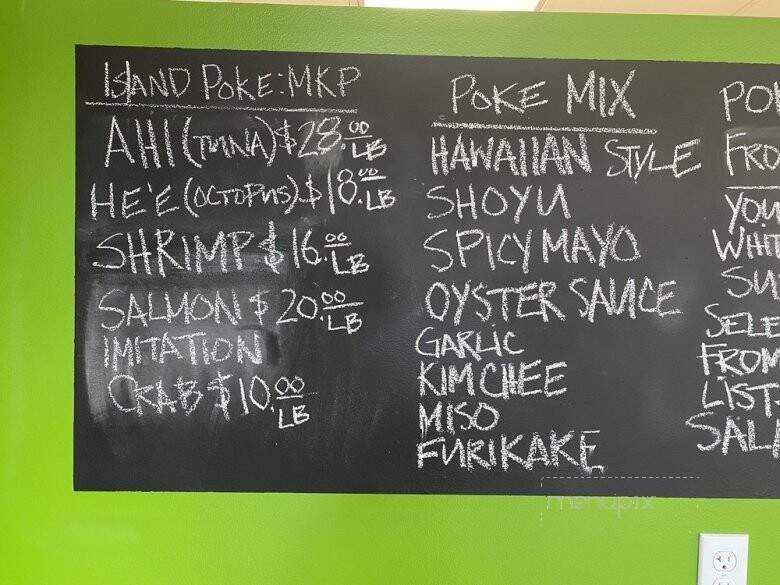 ISLAND POKE: MKP
AHI (TUNA) $28.00 LB
HE'E (OCTOPUS) $18.00 LB
SHRIMP $16.00 LB
SALMON $20.00 LB
IMITATION
CRAB $10.00 LB
POKE MIX
HAWAIIAN STYLE
SHOYU
SPICY MAYO
OYSTER SAUCE
GARLIC
KIM CHEE
MISO
FURIKAKE
PO
FRO
YOU
WHIT
SU
SELE
FROM
LIST
SALA
menupix